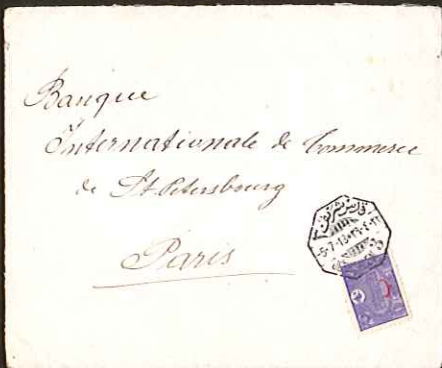 Banque
Internationale de Commerce
de St Petersbourg
Paris